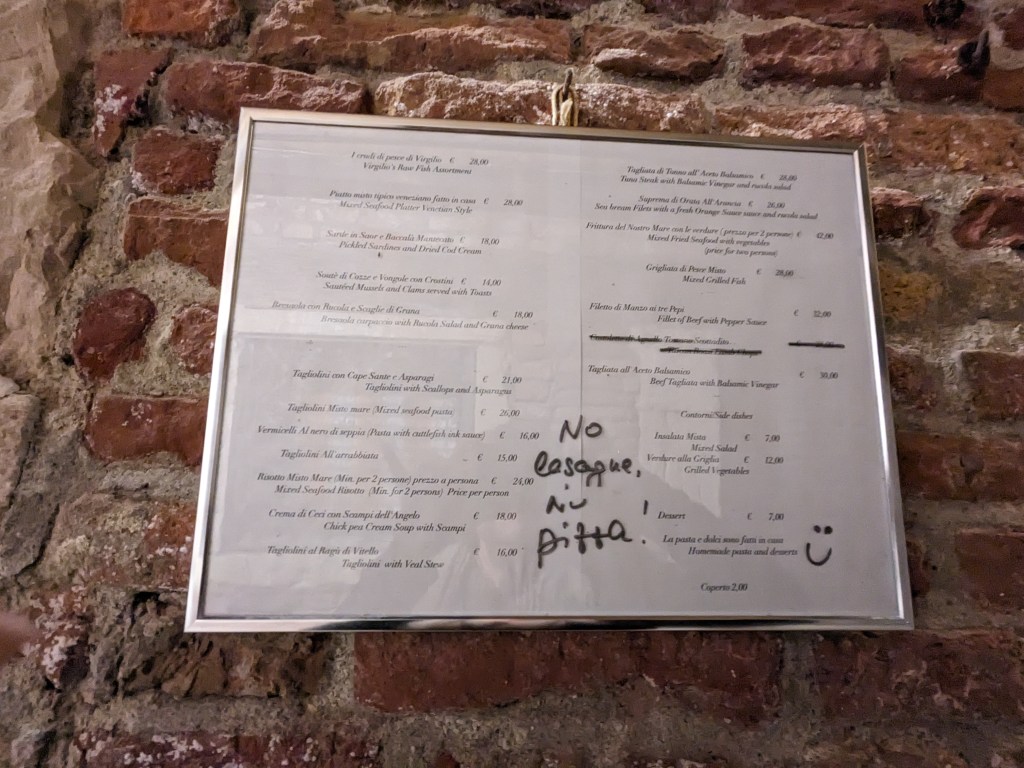 I crudi di pesce di Virgilio € 28,00
Virgilio's Raw Fish Assortment
Piatto misto tipico veneziano fatto in casa € 28,00
Mixed Seafood Platter Venetian Style
Sarde in Saor e Baccalà Mantecato € 18,00
Pickled Sardines and Dried Cod Cream
Soutè di Cozze e Vongole con Crostini € 14,00
Sautéed Mussels and Clams served with Toasts
Bresaola con Rucola e Scaglie di Grana € 18,00
Bresaola carpaccio with Rucola Salad and Grana cheese
Tagliolini con Cape Sante e Asparagi € 21,00
Tagliolini with Scallops and Asparagus
Tagliolini Misto mare (Mixed seafood pasta) € 26,00
Vermicelli Al nero di seppia (Pasta with cuttlefish ink sauce) € 16,00
Tagliolini All'arrabbiata € 15,00
Risotto Misto Mare (Min. per 2 persone) prezzo a persona € 24,00
Mixed Seafood Risotto (Min. for 2 persons) Price per person
Crema di Ceci con Scampi dell'Angelo € 18,00
Chick pea Cream Soup with Scampi
Tagliolini al Ragù di Vitello € 16,00
Tagliolini with Veal Stew
No
lasagne,
no
pizza!
Tagliata di Tonno all' Aceto Balsamico € 28,00
Tuna Steak with Balsamic Vinegar and rucola salad
Suprema di Orata All'Arancia € 26,00
Sea bream Filets with a fresh Orange Sauce sauce and rucola salad
Frittura del Nostro Mare con le verdure ( prezzo per 2 persone) € 42,00
Mixed Fried Seafood with vegetables
(price for two persons)
Grigliata di Pesce Misto € 28,00
Mixed Grilled Fish
Filetto di Manzo ai tre Pepi € 32,00
Fillet of Beef with Pepper Sauce
Tagliata all' Aceto Balsamico € 30,00
Beef Tagliata with Balsamic Vinegar
Contorni/Side dishes
Insalata Mista € 7,00
Mixed Salad
Verdure alla Griglia € 12,00
Grilled Vegetables
Dessert € 7,00
La pasta e dolci sono fatti in casa
Homemade pasta and desserts
Coperto 2,00